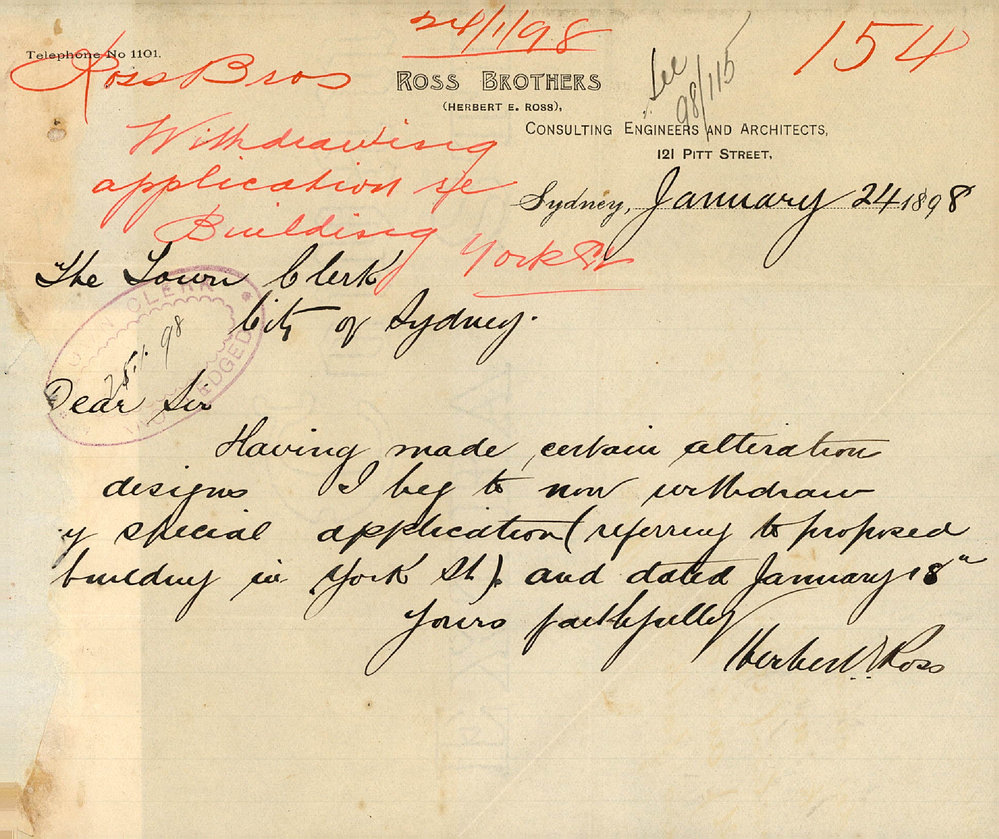 24/1/98
154
Telephone No 1101.
Ross Bros
ROSS BROTHERS
(HERBERT E. ROSS),
See
98/115
CONSULTING ENGINEERS AND ARCHITECTS,
121 PITT STREET,
Withdrawing
application re
Building York St
Sydney, January 24 1898
The Town Clerk
City of Sydney.
TOWN CLERK
25.1.98
Dear Sir
Having made certain alteration
designs I beg to now withdraw
y special application (referring to proposed
building in York St). and dated January 18"
Yours faithfully
Herbert E Ross